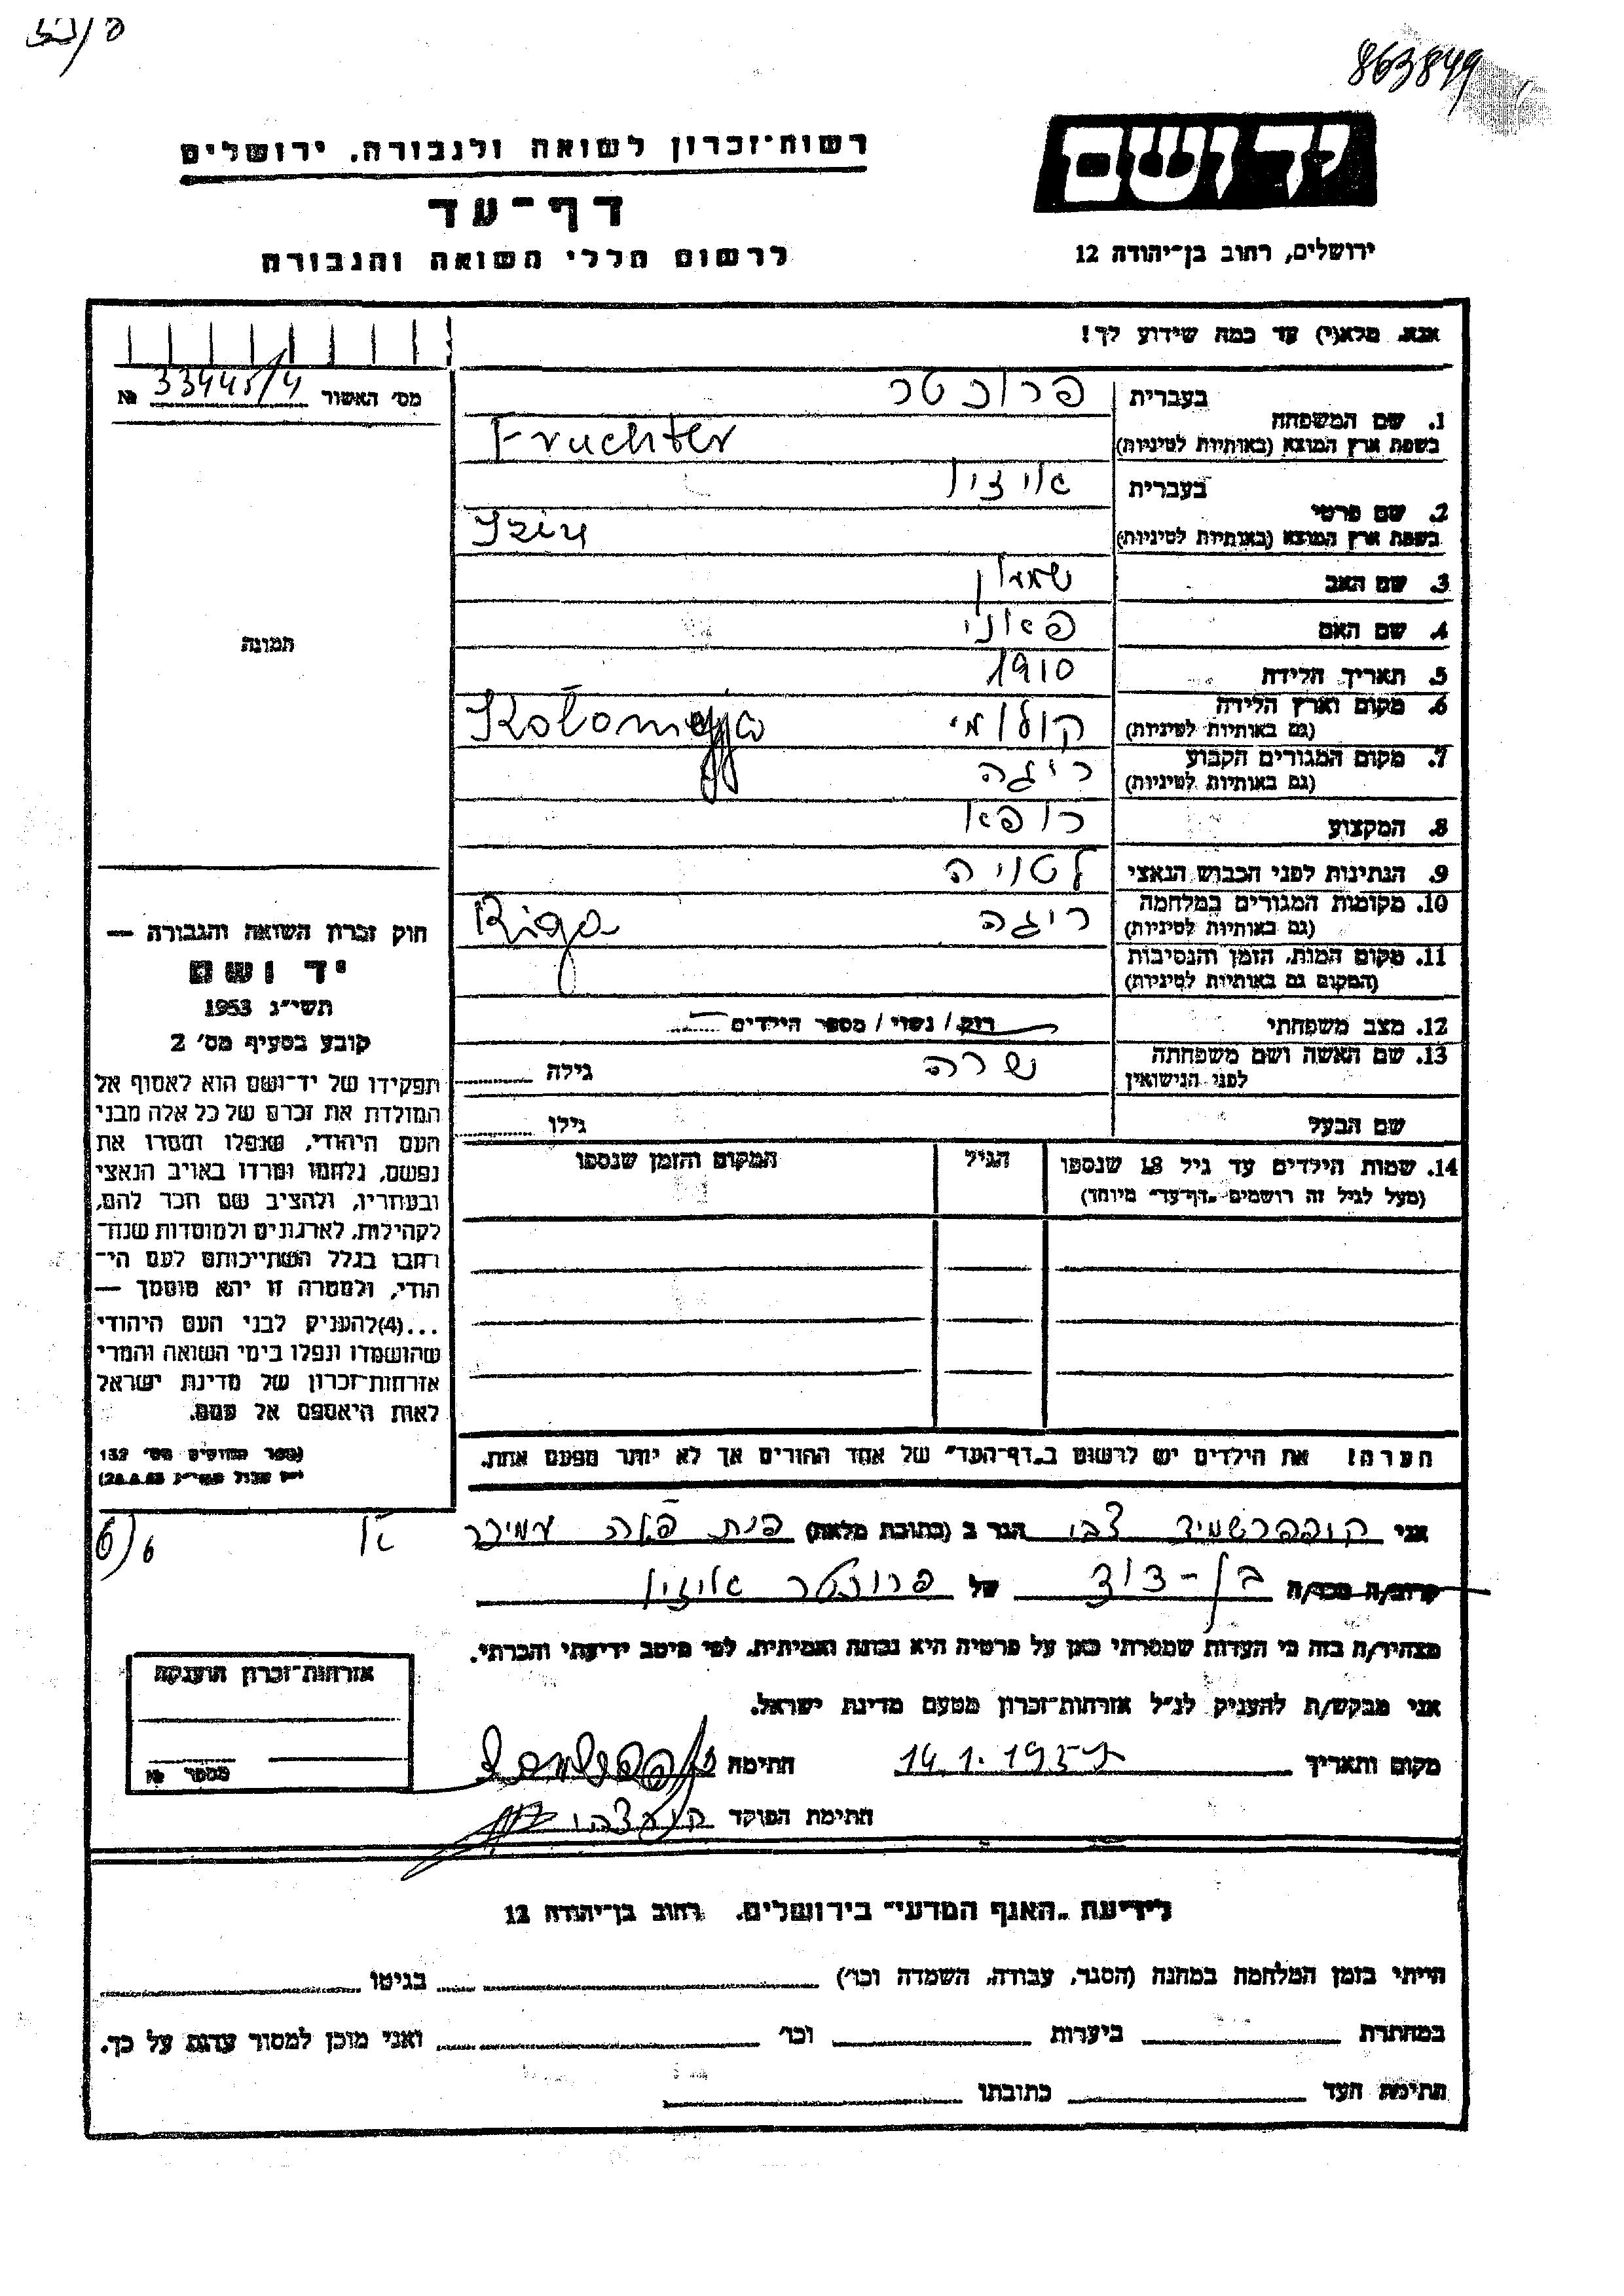 863849
יד ושם
ירושלים, רחוב בן־יהודה 12
רשות־זכרון לשואה ולגבורה. ירושלים
דף־עד
לרשום חללי השואה והגבורה
אנא. מלא(י) עד כמה שידוע לך!
מס׳ האשור 33445/4 №
1. שם המשפחה בעברית פרוכטר
בשפת ארץ המוצא (באותיות לטיניות) Fruchter
2. שם פרטי בעברית איזיו
בשפת ארץ המוצא (באותיות לטיניות) Iziu
3. שם האב שמעון
4. שם האם פאני
5. תאריך הלידה 1910
6. מקום וארץ הלידה קולומי Kołomyja
(גם באותיות לטיניות)
7. מקום המגורים הקבוע ריגה
(גם באותיות לטיניות)
8. המקצוע רופא
9. הנתינות לפני הכבוש הנאצי לטויה
10. מקומות המגורים במלחמה ריגה Riga
(גם באותיות לטיניות)
11. מקום המות, הזמן והנסיבות
(המקום גם באותיות לטיניות)
12. מצב משפחתי רווק / נשוי / מספר הילדים
13. שם האשה ושם משפחתה שרה גילה
לפני הנישואין
שם הבעל גילו
14. שמות הילדים עד גיל 18 שנספו הגיל המקום והזמן שנספו
(מעל לגיל זה רושמים „דף־עד״ מיוחד)
הערה! את הילדים יש לרשום ב„דף־העד״ של אחד ההורים אך לא יותר מפעם אחת.
תמונה
חוק זכרון השואה והגבורה —
יד ושם
תשי״ג 1953
קובע בסעיף מס׳ 2
תפקידו של יד־ושם הוא לאסוף אל
המולדת את זכרם של כל אלה מבני
העם היהודי, שנפלו ומסרו את
נפשם, נלחמו ומרדו באויב הנאצי
ובעוזריו, ולהציב שם וזכר להם,
לקהילות, לארגונים ולמוסדות שנח־
רבו בגלל השתייכותם לעם הי־
הודי, ולמטרה זו יהא מוסמך —
...(4) להעניק לבני העם היהודי
שהושמדו ונפלו בימי השואה והמרי
אזרחות־זכרון של מדינת ישראל
לאות היאספם אל עמם.
(ספר החוקים מס׳ 132
אני קופפרשמיד צבי הגר ב (כתובת מלאה) פנת עמידר
קרוב/ה מכר/ה בן-דוד של פרוכטר איזיו
מצהיר/ה בזה כי העדות שמסרתי כאן על פרטיה היא נכונה ואמיתית, לפי מיטב ידיעתי והכרתי.
אני מבקש/ת להעניק לנ״ל אזרחות־זכרון מטעם מדינת ישראל.
מקום ותאריך 14.1.1957 חתימה
חתימת הפוקד
אזרחות־זכרון הוענקה
מספר №
לידיעת „האגף המדעי״ בירושלים. רחוב בן־יהודה 12
הייתי בזמן המלחמה במחנה (הסגר, עבודה, השמדה וכו׳) בגיטו
במחתרת ביערות וכו׳ ואני מוכן למסור עדות על כך.
חתימת העד כתובתו